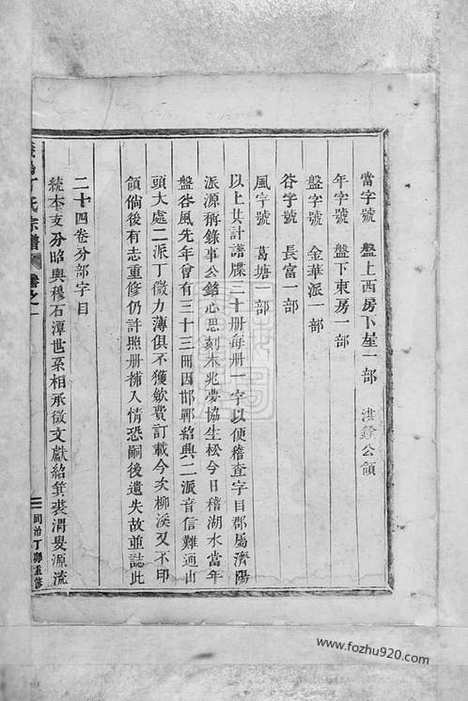 當字號　盤上西房下星一部　洪鎽公領
年字號　盤下東房一部
盤字號　金華派一部
谷字號　長富一部
風字號　葛塘一部
以上共計譜牒三十册每册一字以便稽查字目郡屬濟陽
派源稱錄事公鎚心思刻木兆夢協生松今日稽湖水當年
盤谷風先年會有三十三冊因邯鄲紹興二派音信難通山
頭大處二派丁微力薄俱不獲斂費訂載今次柳溪又不印
領倘後有志重修仍許照册補入情恐嗣後遺失故並誌此
二十四卷分部字目
統本支分昭與穆石潭世系相承徵文獻紹箕裘渭叟源流
丁氏宗譜　卷之一
同治丁卯重修
www.fozhu920.com